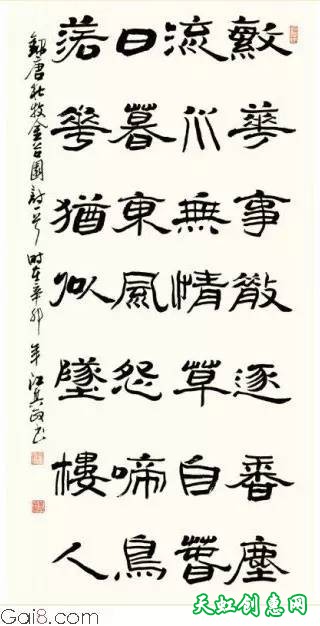 繁華事散逐香塵
流水無情草自春
日暮東風怨啼鳥
落花猶似墜樓人
錄唐杜牧金谷園詩一首 时在辛卯年
Gai8.com
天虹创意网